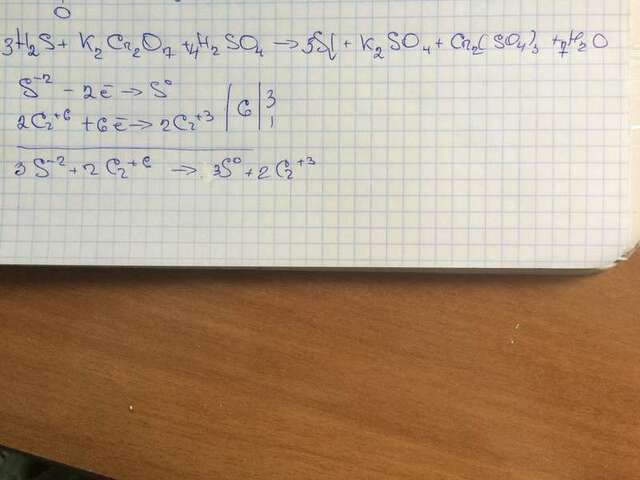 O
3H₂S + K₂Cr₂O₇ + 4H₂SO₄ → 3S↓ + K₂SO₄ + Cr₂(SO₄)₃ + 7H₂O
S⁻² - 2ē → S⁰ | 6 | 3
2Cr⁺⁶ + 6ē → 2Cr⁺³ | | 1
3S⁻² + 2Cr⁺⁶ → 3S⁰ + 2Cr⁺³